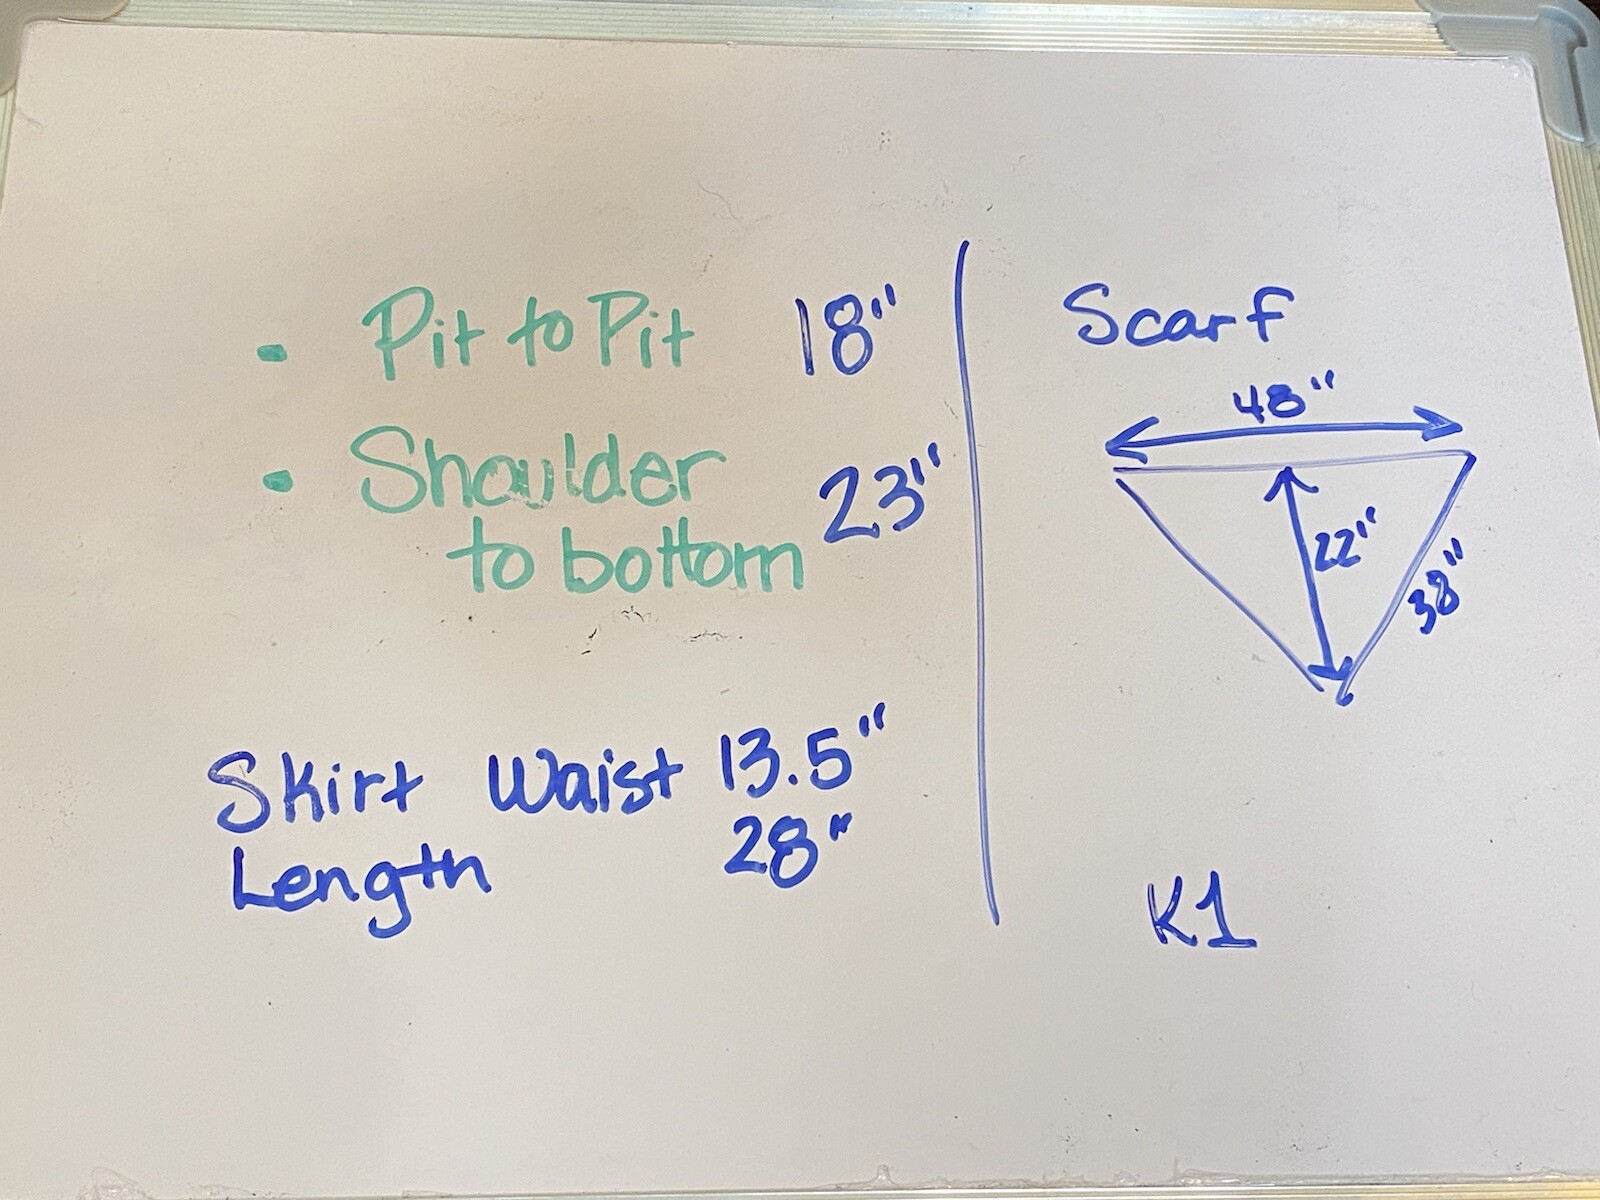 • Pit to Pit 18"
• Shoulder
to bottom 23"
Skirt Waist 13.5"
Length 28"
Scarf
48"
22"
38"
K1